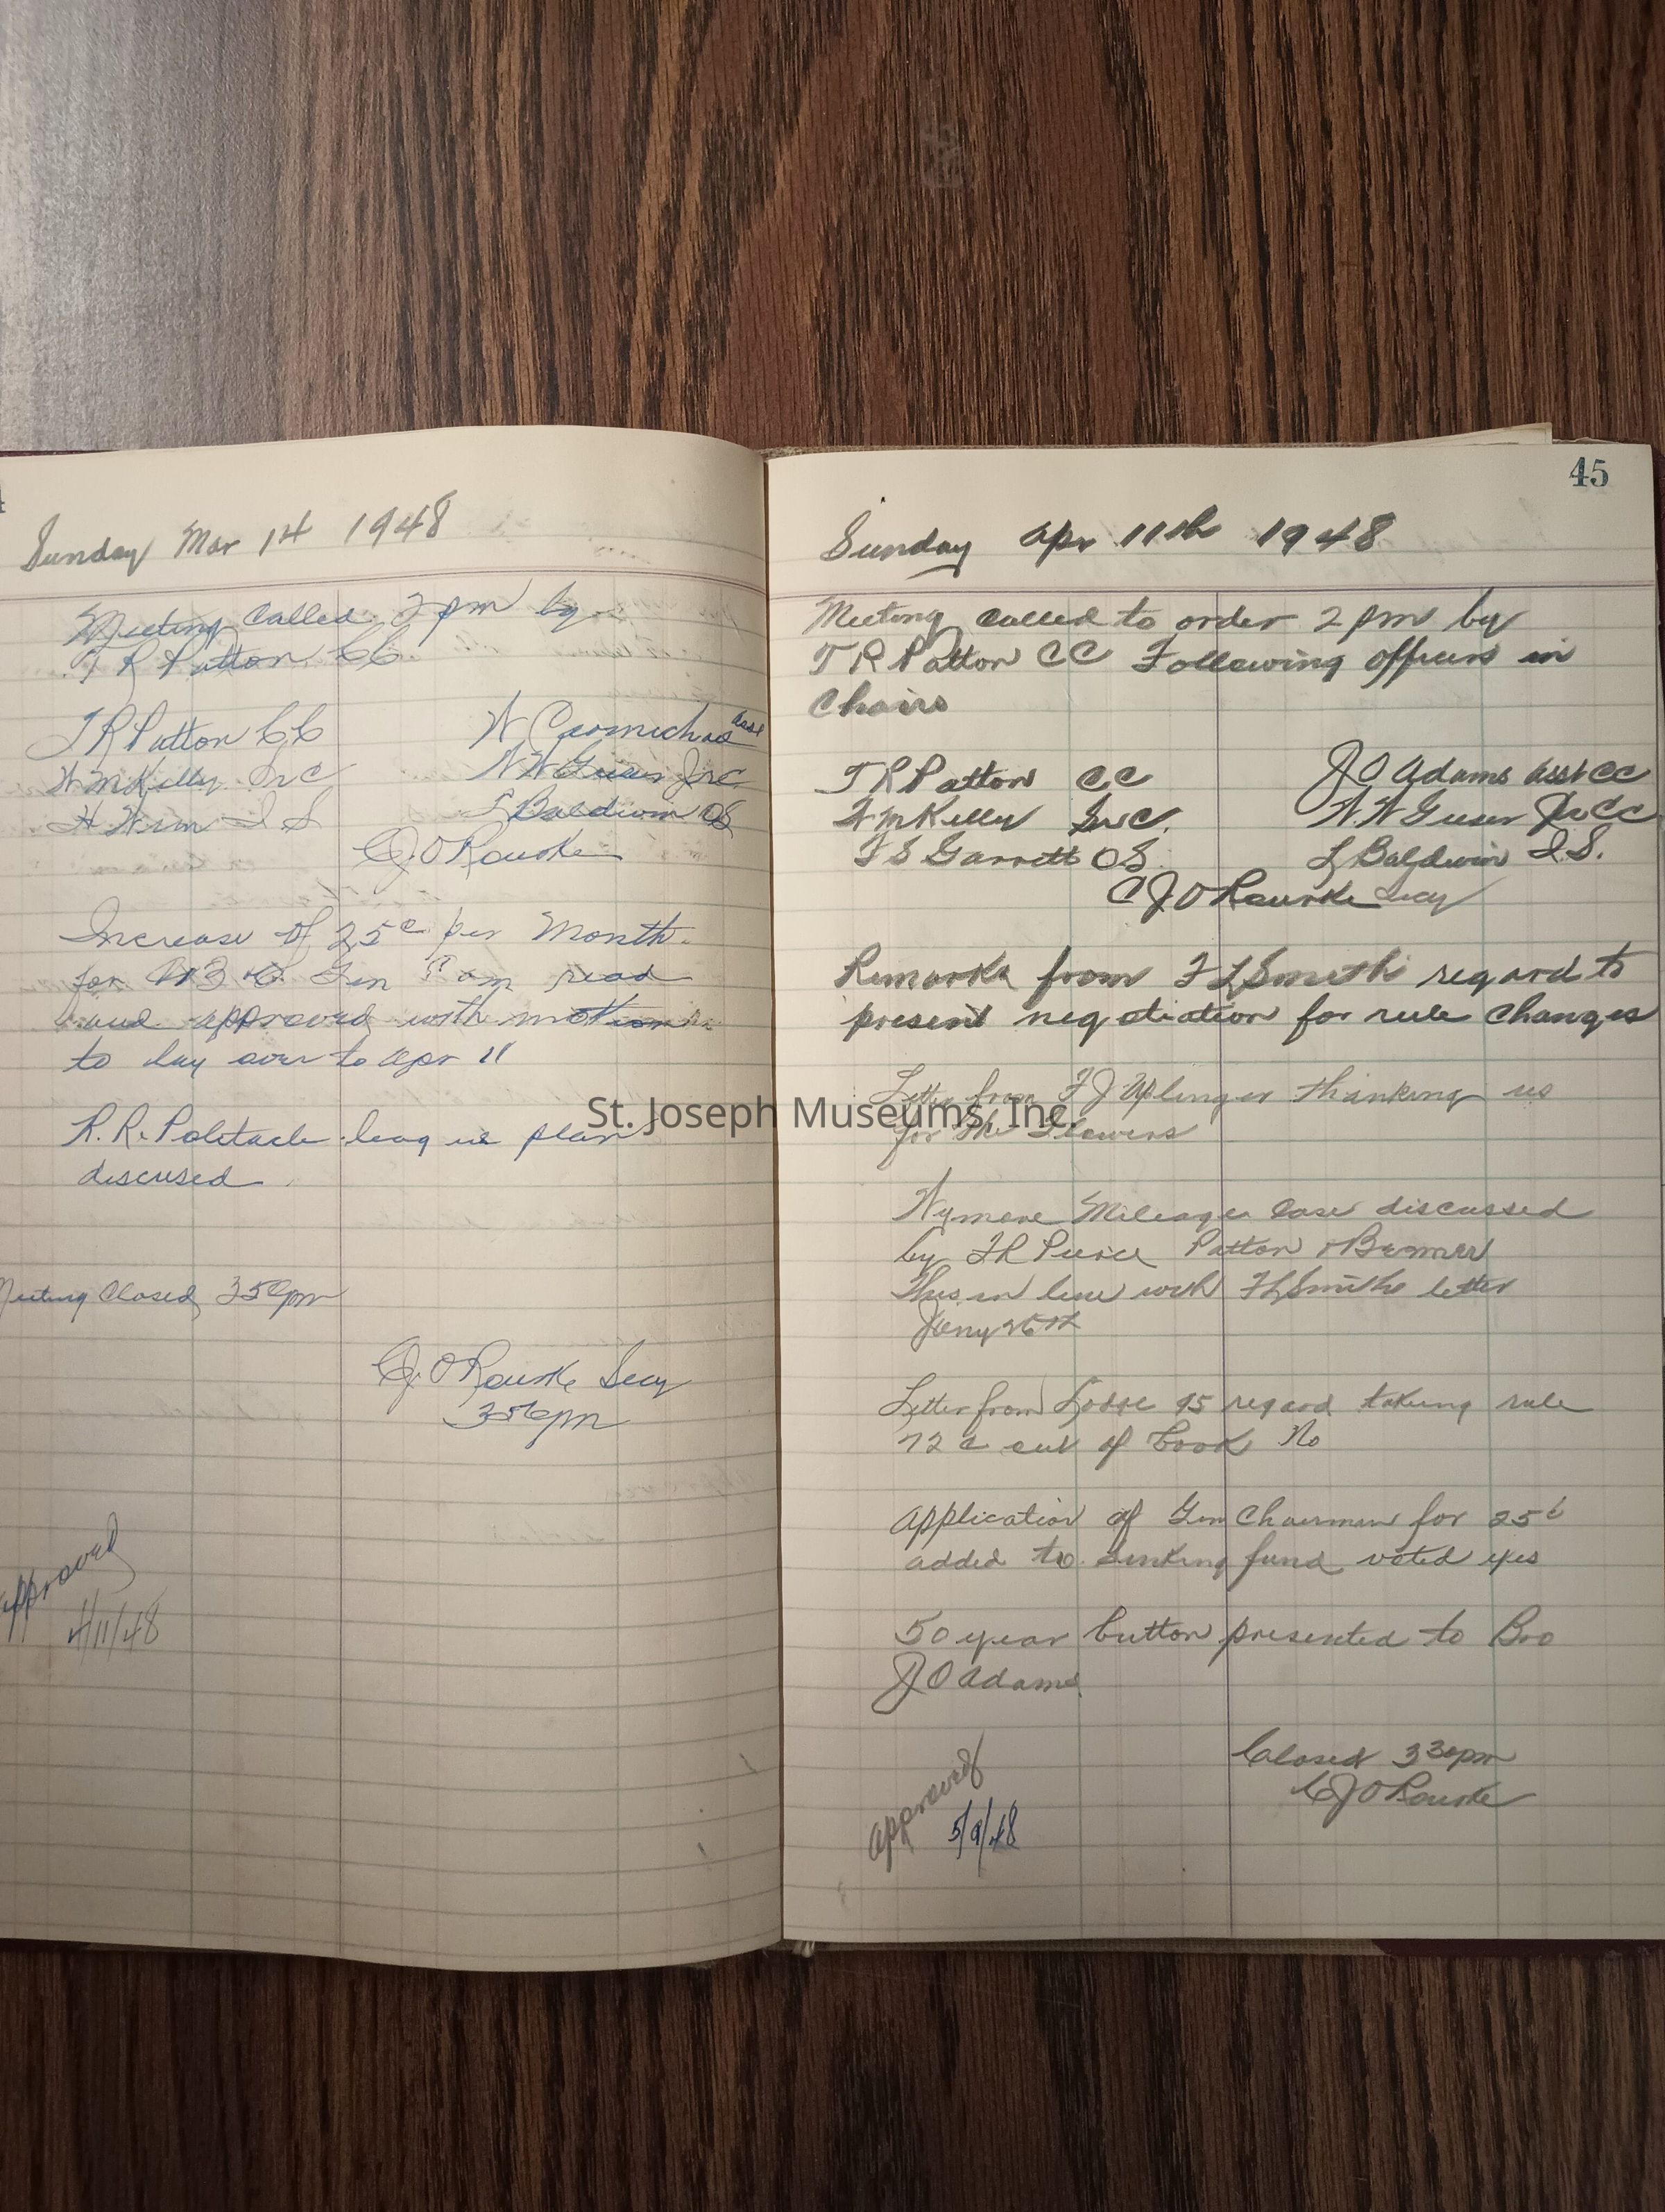 Sunday Mar 14 1948
Meeting Called 2 pm by
T R Patton CC
T R Patton CC W Carmichael asst
W M Kelly Sr C W W Jr C
H I S L Baldwin OS
C J O Rourke
Increase of 25c per Month
for Gen read
and approved with motion
to lay over to Apr 11
R. R. league plan
discused
Meeting Closed 350pm
C J O Rourke Secy
350pm
Approved
4/11/48
45
Sunday Apr 11th 1948
Meeting called to order 2 pm by
T R Patton CC Following officers in
Chairs
T R Patton CC J O Adams Asst CC
W M Kelly Sr C. W W Jr CC
F S Garrett OS L Baldwin I.S.
C J O Rourke Secy
Remarks from F L Smith regard to
present negotiation for rule Changes
Letter from F J Uplinger thanking us
for the Flowers
Wymore Mileage Case discussed
by Patton &
This in line with F L Smiths letter
Jany 26th
Letter from Lodge 95 regard taking rule
72 c out of book No
Application of Gen Chairman for 25c
added to sinking fund voted yes
50 year button presented to Bro
J O Adams
Closed 330pm
C J O Rourke
Approved
5/9/48
St. Joseph Museums, Inc.